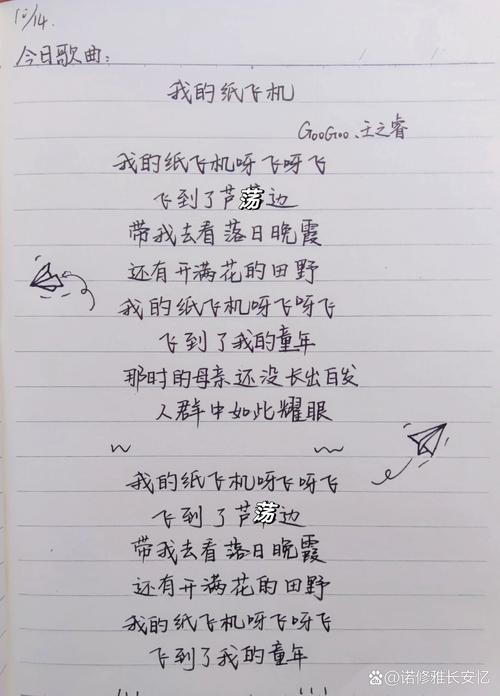 10/14.
今日歌曲:
我的纸飞机
GooGoo、王之睿
我的纸飞机呀飞呀飞
飞到了芦荡边
带我去看落日晚霞
还有开满花的田野
我的纸飞机呀飞呀飞
飞到了我的童年
那时的母亲还没长出白发
人群中如此耀眼
我的纸飞机呀飞呀飞
飞到了芦荡边
带我去看落日晚霞
还有开满花的田野
我的纸飞机呀飞呀飞
飞到了我的童年
@诺修雅长安忆